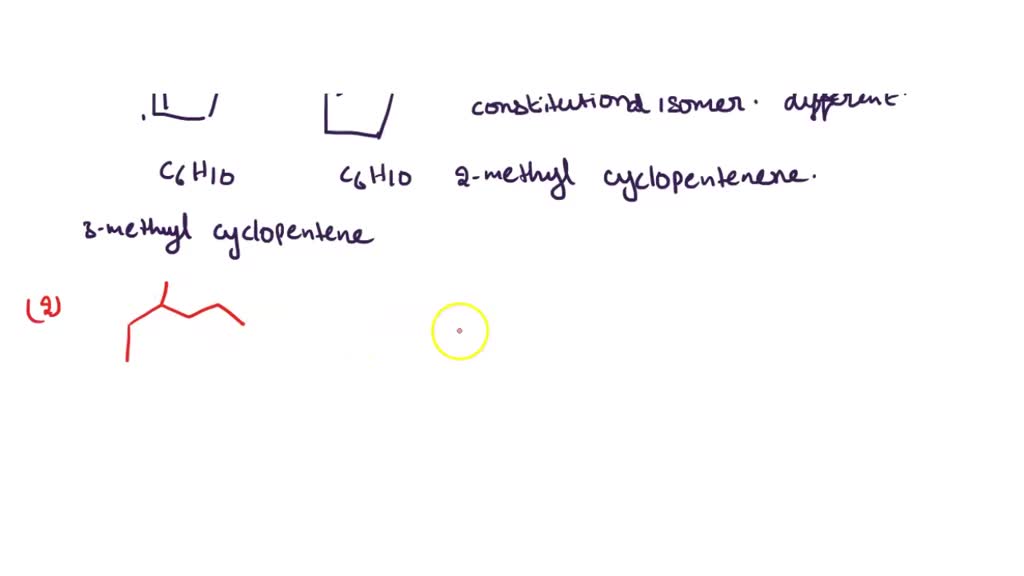 constitutional isomer. different.
C6H10 C6H10 2-methyl cyclopentenene.
3-methyl cyclopentene
(2)